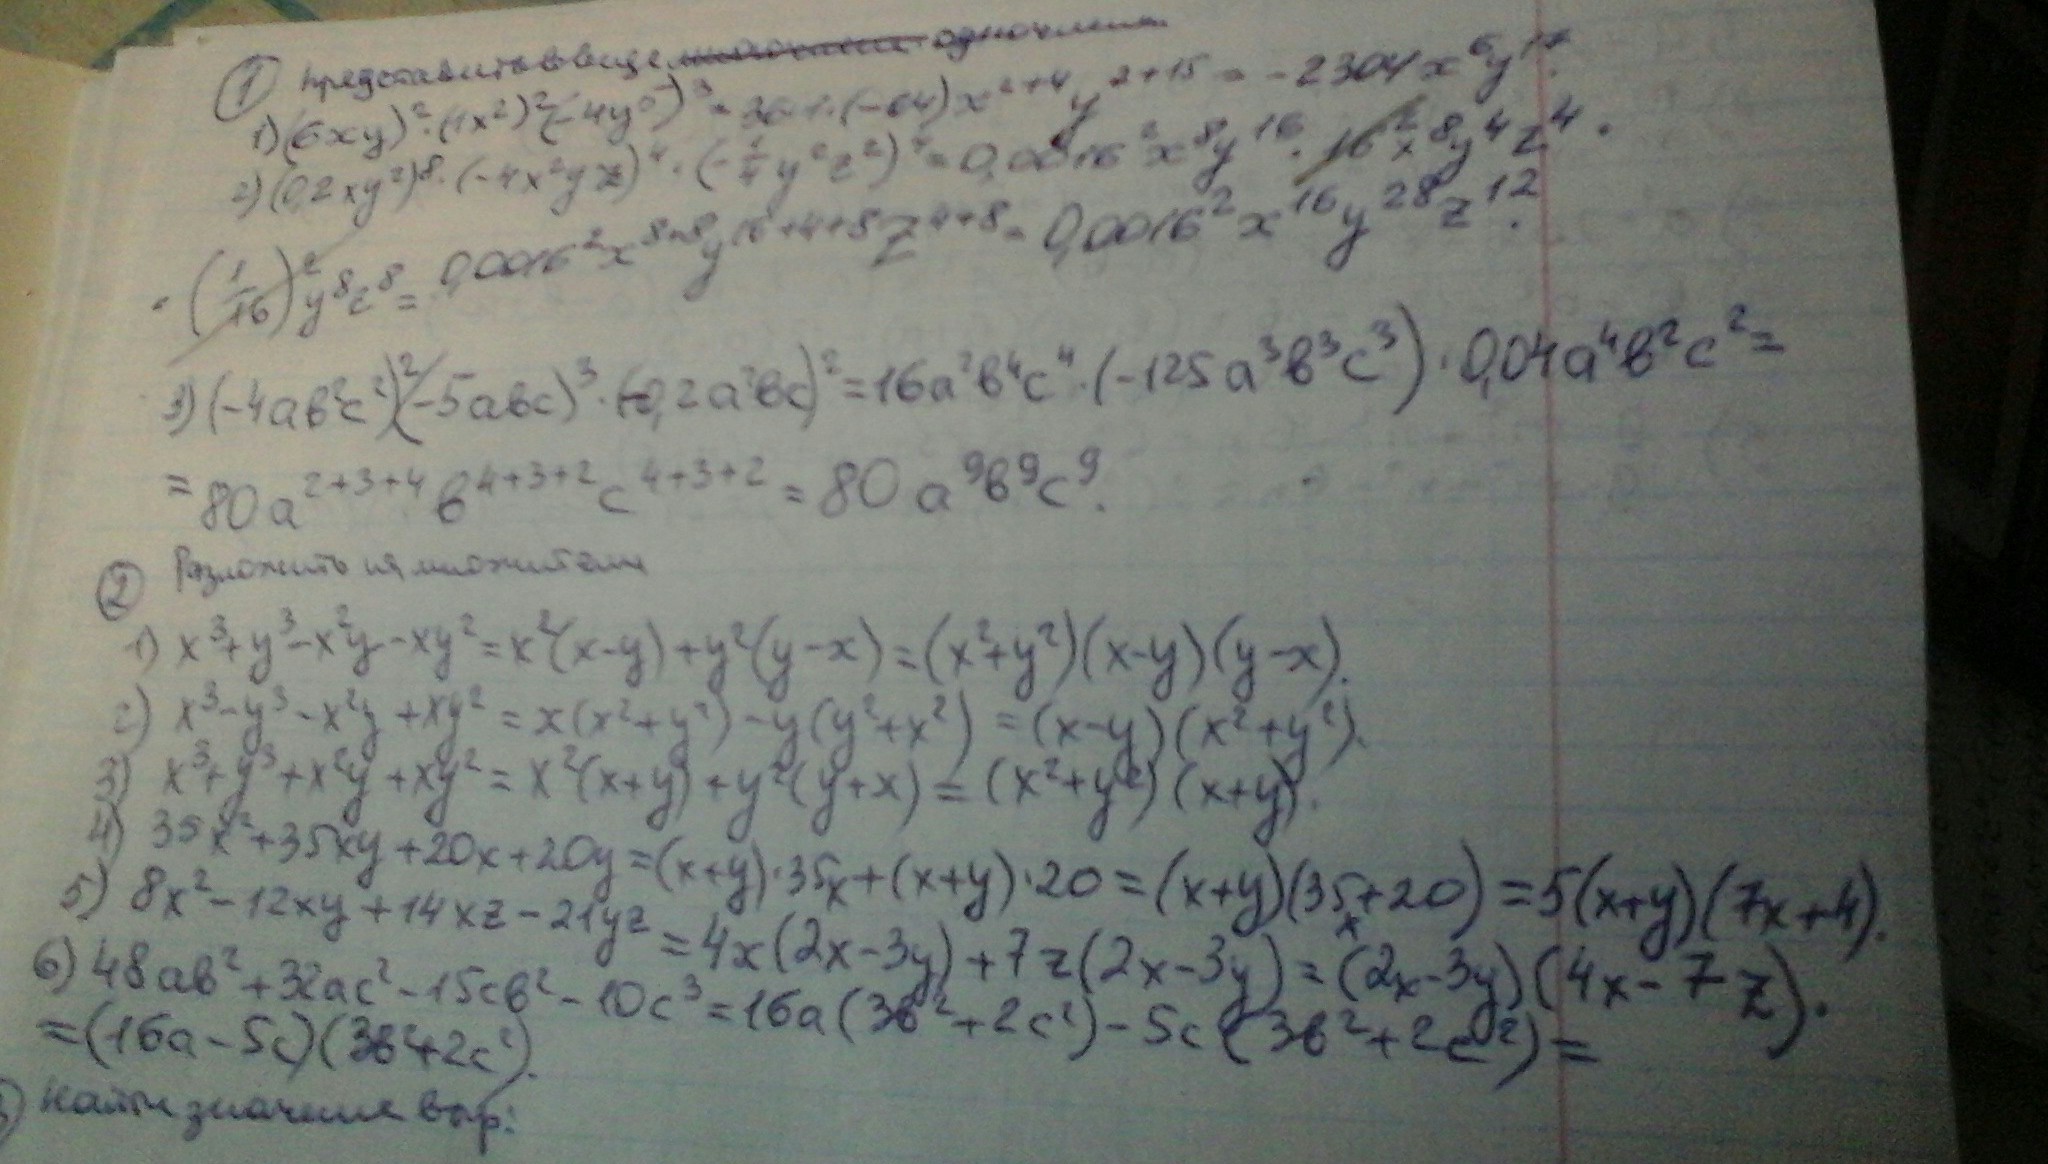 ① Представить в виде одночлена
1) (6xy)²·(1x²)²(-4y⁵)³ = 36·1·(-64)x²⁺⁴y²⁺¹⁵ = -2304x⁶y¹⁷.
2) (0,2xy²)⁸·(-4x²yz)⁴·(-1/4y²z²)⁴ = 0,0016²x⁸y¹⁶·16²x⁸y⁴z⁴·
·(1/16)²y⁸z⁸ = 0,0016²x⁸⁺⁸y¹⁶⁺⁴⁺⁸z⁴⁺⁸ = 0,0016²x¹⁶y²⁸z¹².
3) (-4ab²c²)²(-5abc)³·(-0,2a²bc)² = 16a²b⁴c⁴·(-125a³b³c³)·0,04a⁴b²c² =
= 80a²⁺³⁺⁴b⁴⁺³⁺²c⁴⁺³⁺² = 80a⁹b⁹c⁹.
② Разложить на множители
1) x³+y³-x²y-xy² = x²(x-y)+y²(y-x) = (x²+y²)(x-y)(y-x).
2) x³-y³-x²y+xy² = x(x²+y²)-y(y²+x²) = (x-y)(x²+y²).
3) x³+y³+x²y+xy² = x²(x+y)+y²(y+x) = (x²+y²)(x+y).
4) 35x²+35xy+20x+20y = (x+y)·35x+(x+y)·20 = (x+y)(35x+20) = 5(x+y)(7x+4).
5) 8x²-12xy+14xz-21yz = 4x(2x-3y)+7z(2x-3y) = (2x-3y)(4x-7z).
6) 48ab²+32ac²-15cb²-10c³ = 16a(3b²+2c²)-5c(3b²+2c²) =
= (16a-5c)(3b²+2c²).
Найти значение выр: